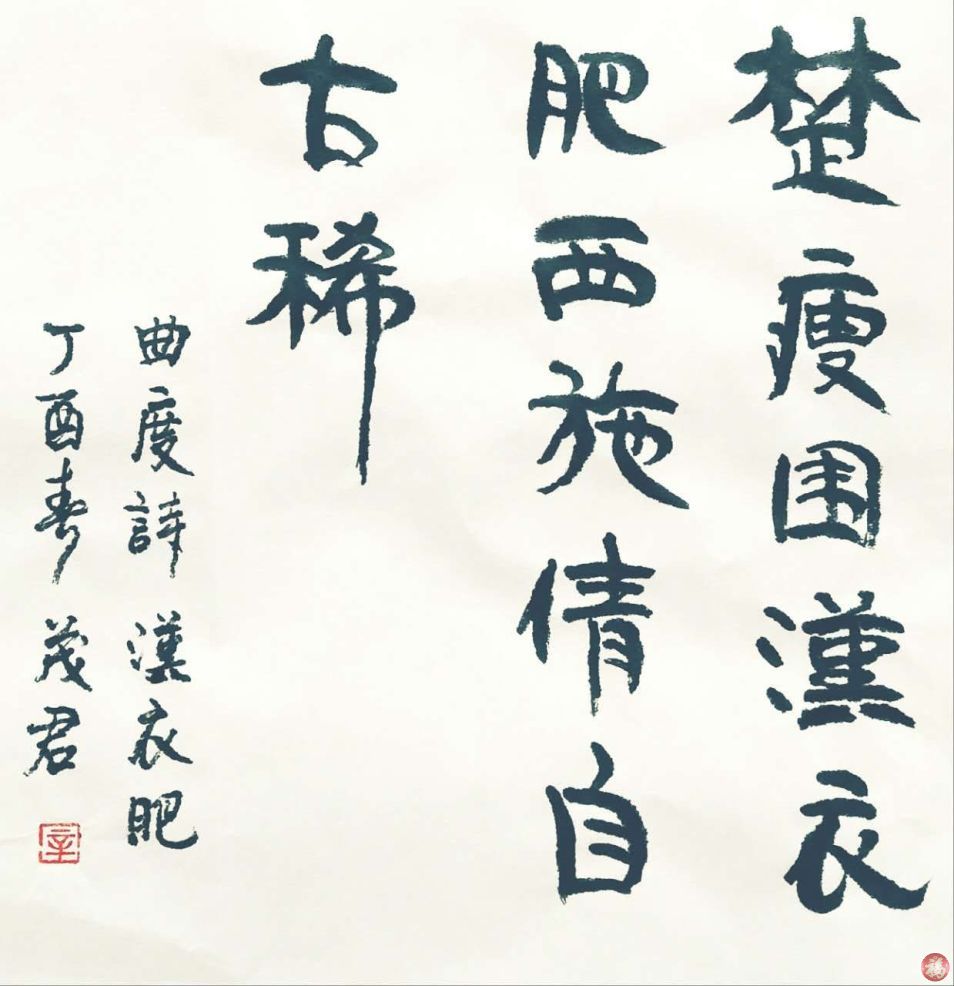 楚瘦围漢衣
肥西施倩自
古稀
曲度詩 漢衣肥
丁酉春 茂君
福